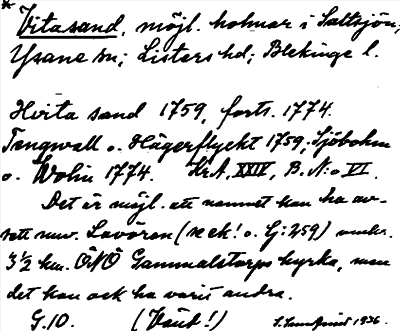 * Vitasand, möjl. holmar i Saltsjön,
Ysane sn; Listers hd; Blekinge l.
Hvita sand 1759, forts. 1774.
Tengwall o. Hägerflyckt 1759, Sjöbohm
o. Wolin 1774. Kr.A. XXIV, B. N:o VI.
Det är möjl. att namnet kan ha av-
sett nuv. Lavören (se ek! o. Gj:259) omkr.
3 ½ km. ÖNÖ Gammalstorps kyrka, men
det kan ock ha varit andra.
G.10. (Känt!)